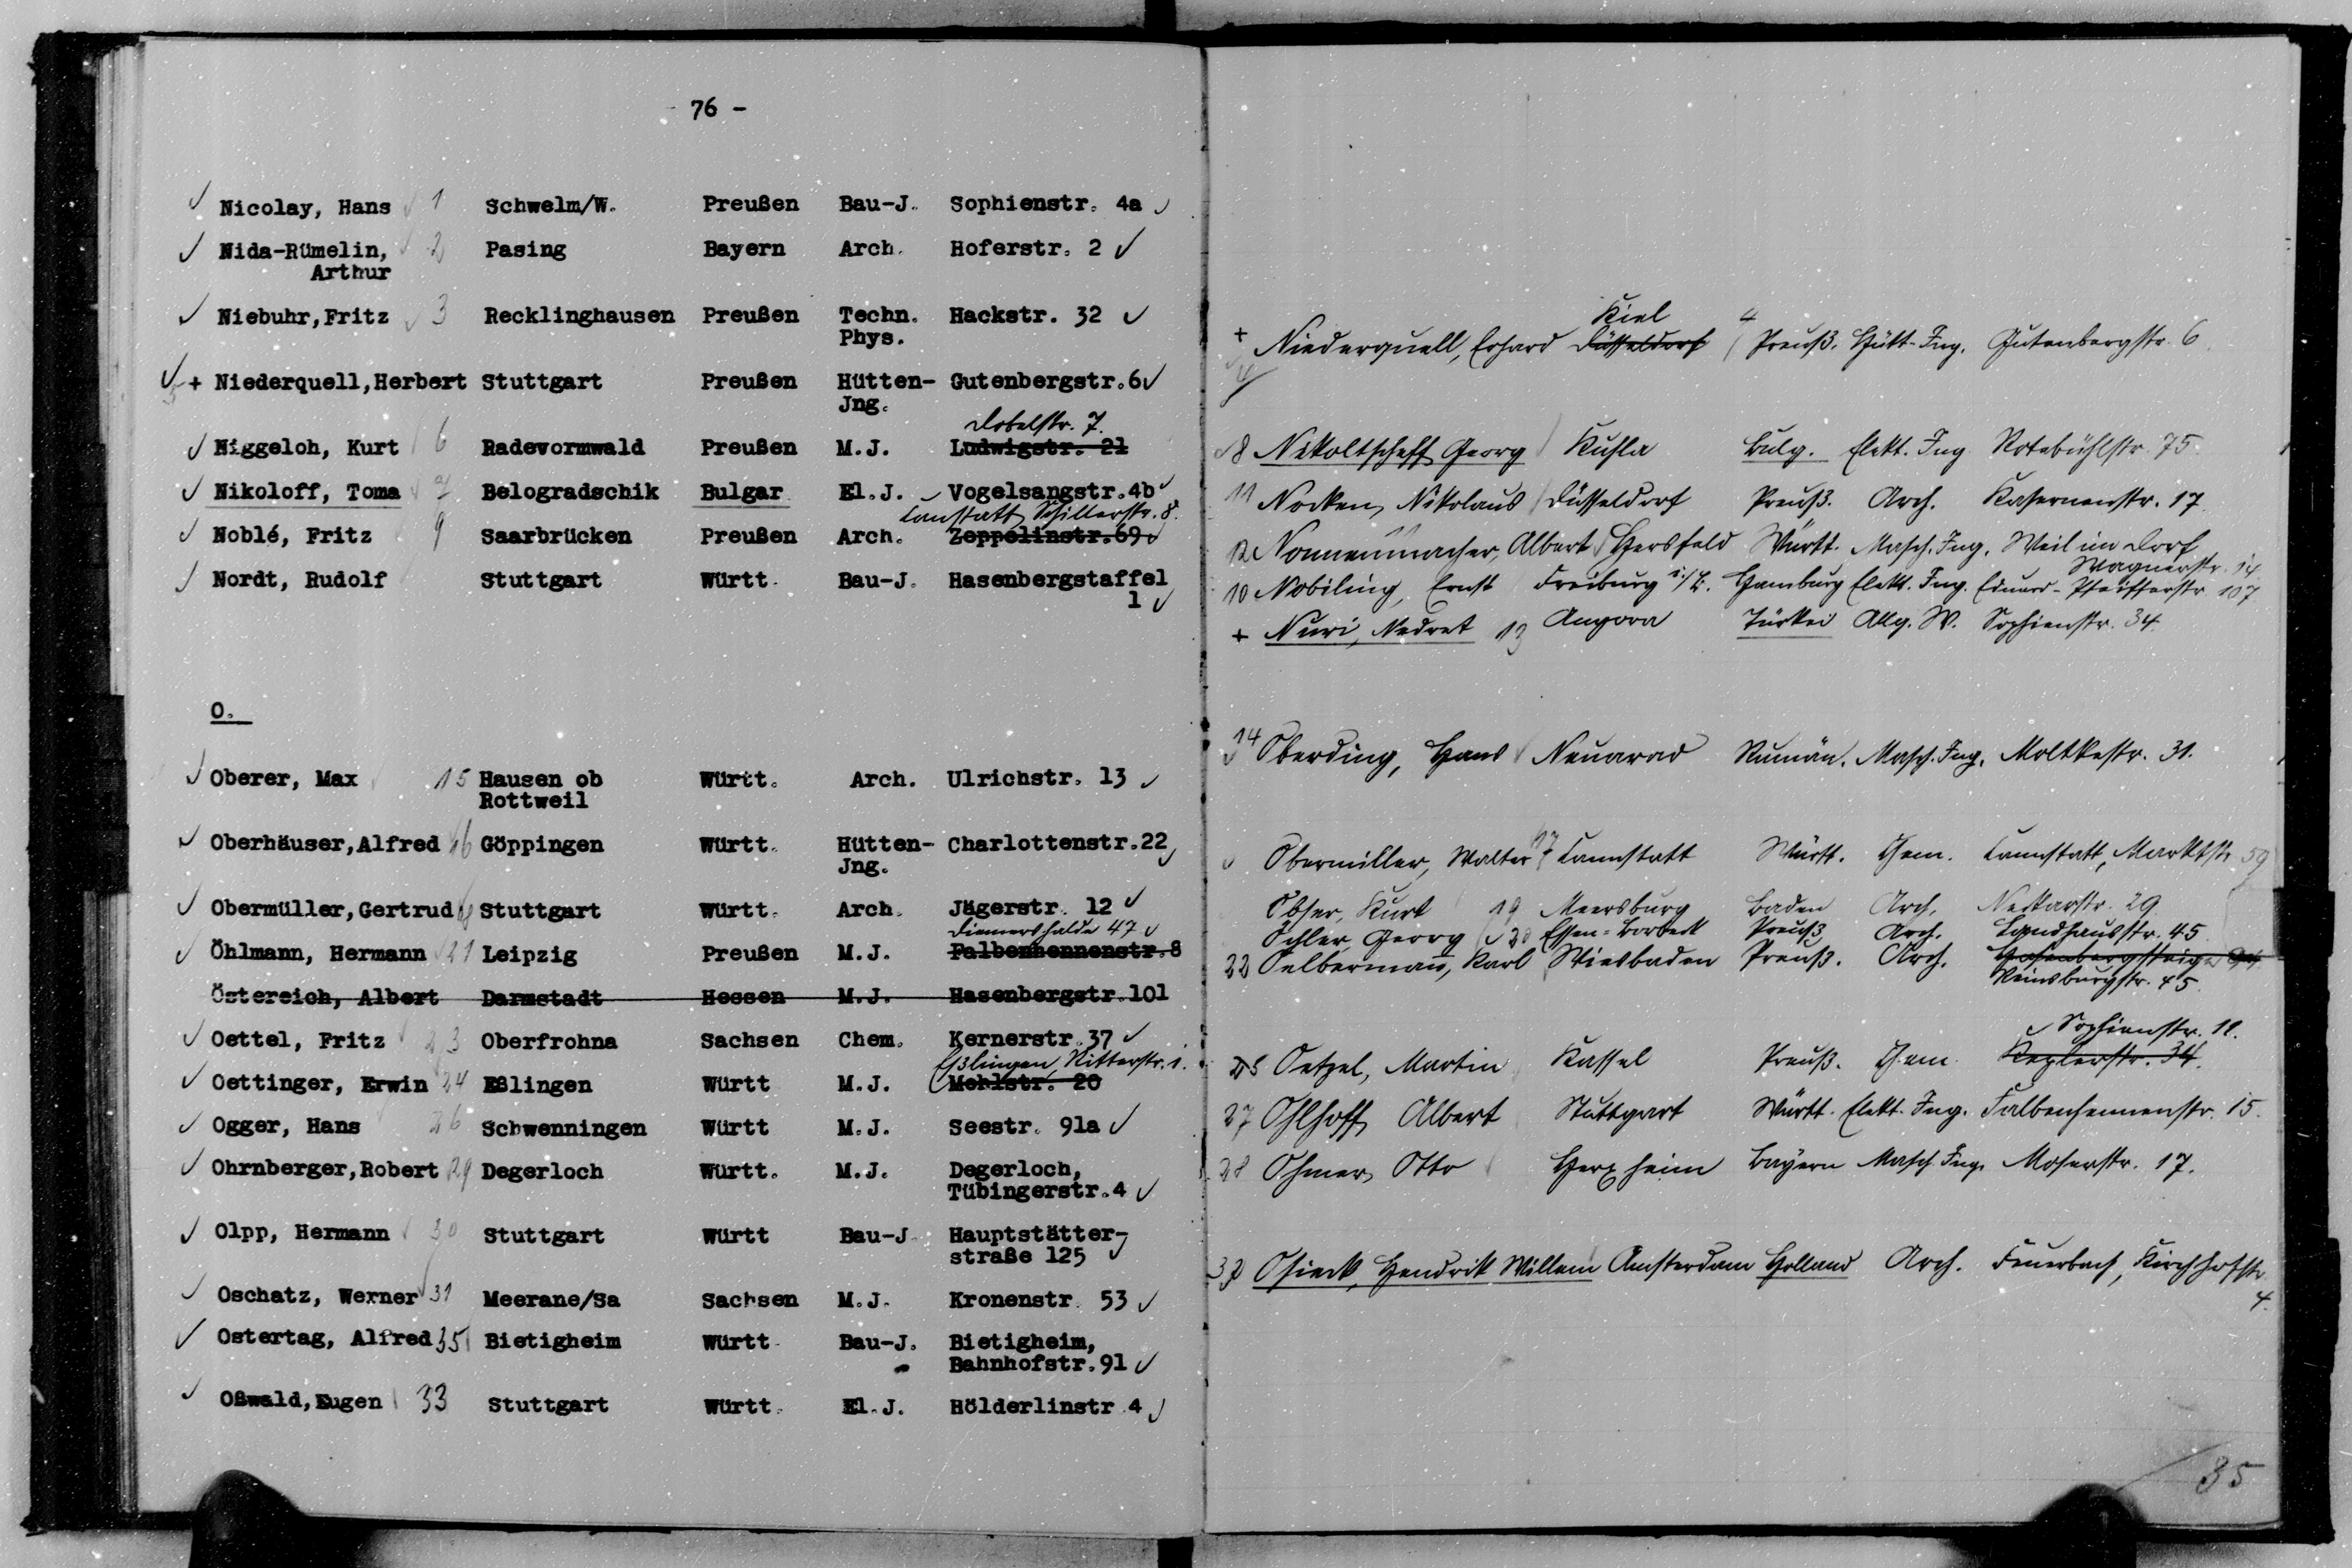 76 -
Nicolay, Hans 1 Schwelm/W. Preußen Bau-J. Sophienstr. 4a
Nida-Rümelin, 2 Pasing Bayern Arch. Hoferstr. 2
Arthur
Niebuhr, Fritz 3 Recklinghausen Preußen Techn. Hackstr. 32
Phys.
+ Niederquell, Herbert Stuttgart Preußen Hütten- Gutenbergstr. 6
5 Jng.
Dobelstr. 7.
Niggeloh, Kurt 6 Radevormwald Preußen M.J. Ludwigstr. 21
Nikoloff, Toma 7 Belogradschik Bulgar El.J. Vogelsangstr. 4b
Cannstatt, Schillerstr. 8.
Noblé, Fritz 9 Saarbrücken Preußen Arch. Zeppelinstr. 69
Nordt, Rudolf Stuttgart Württ. Bau-J. Hasenbergstaffel
1
O.
Oberer, Max 15 Hausen ob Württ. Arch. Ulrichstr. 13
Rottweil
Oberhäuser, Alfred 16 Göppingen Württ. Hütten- Charlottenstr. 22
Jng.
Obermüller, Gertrud 18 Stuttgart Württ. Arch. Jägerstr. 12
Diemershalde 47
Öhlmann, Hermann 21 Leipzig Preußen M.J. Falbenhennenstr. 8
Östereich, Albert Darmstadt Hessen M.J. Hasenbergstr. 101
Oettel, Fritz 23 Oberfrohna Sachsen Chem. Kernerstr. 37
Eßlingen, Ritterstr. 1.
Oettinger, Erwin 24 Eßlingen Württ M.J. Mohlstr. 20
Ogger, Hans 26 Schwenningen Württ M.J. Seestr. 91a
Ohrnberger, Robert 29 Degerloch Württ. M.J. Degerloch,
Tübingerstr. 4
Olpp, Hermann 30 Stuttgart Württ Bau-J Hauptstätter-
straße 125
Oschatz, Werner 31 Meerane/Sa Sachsen M.J. Kronenstr. 53
Ostertag, Alfred 35 Bietigheim Württ Bau-J. Bietigheim,
Bahnhofstr. 91
Oßwald, Eugen 33 Stuttgart Württ. El.J. Hölderlinstr 4
Kiel 4
+ Niederquell, Erhard Düsseldorf Preuß. Hütt-Ing. Gutenbergstr. 6
8 Nikoltscheff Georg Kuhla Bulg. Elekt. Ing Rotebühlstr. 75
11 Nocken, Nikolaus Düsseldorf Preuß. Arch. Kasernenstr. 17
12 Nonnenmacher, Albert Hersfeld Württ. Masch. Ing. Weil im Dorf
Wagnerstr. 14
10 Nobiling, Ernst Freiburg i/B. Hamburg Elekt. Ing. Eduard-Pfeifferstr 107
+ Nuri, Nedret 13 Angora Türkei Allg. W. Sophienstr. 34.
14 Oberding, Hans Neuarad Rumän. Masch. Ing. Moltkestr. 31.
Obermiller, Walter 17 Cannstatt Württ. Chem. Cannstatt, Marktstr 59
Obser, Kurt 19 Meersburg Baden Arch. Neckarstr. 29
Öhler, Georg 20 Essen-Borbeck Preuß Arch. Landhausstr. 45
22 Oelbermann, Karl Wiesbaden Preuß. Arch. Hasenbergsteige
Reinsburgstr. 45.
Sophienstr. 11.
25 Oetzel, Martin Kassel Preuß. Chem Keplerstr. 34.
27 Ohlhoff Albert Stuttgart Württ. Elekt. Ing. Falbenhennenstr. 15.
28 Ohmer, Otto Herxheim Bayern Masch Ing. Moserstr. 17.
32 Osieck, Hendrik Willem Amsterdam Holland Arch. Feuerbach, Kirchhofstr.
4.
35